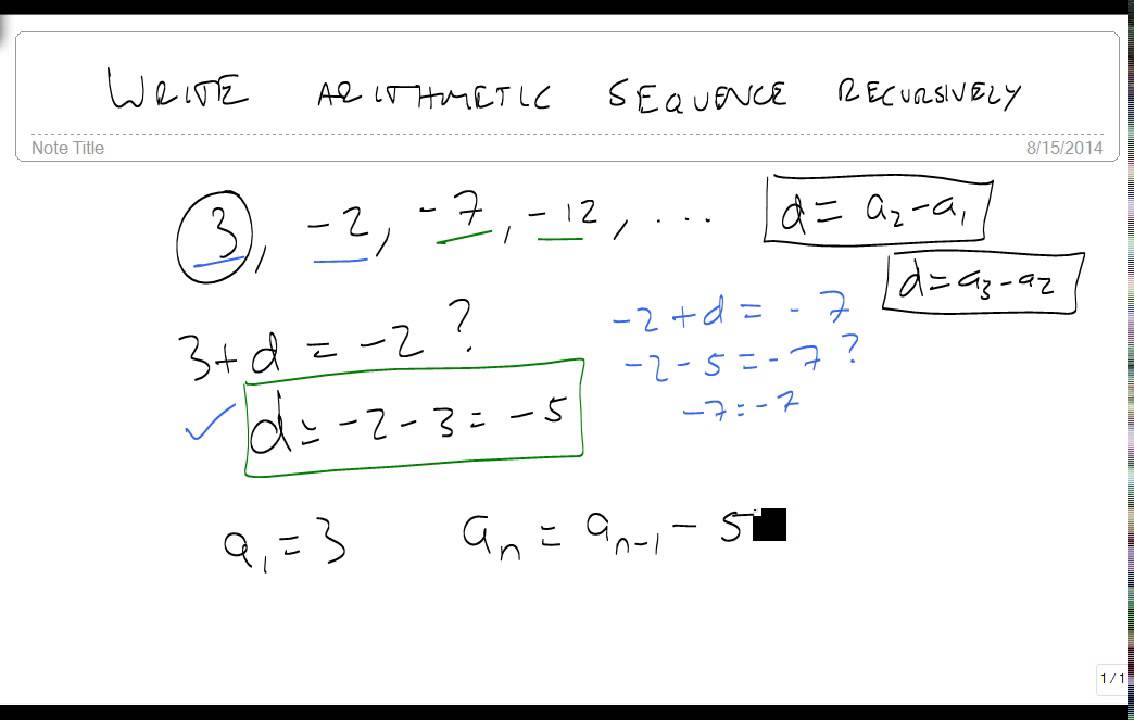 WRITE ARITHMETIC SEQUENCE RECURSIVELY
Note Title
8/15/2014
3, -2, -7, -12, ...
d = a₂ - a₁
d = a₃ - a₂
3 + d = -2 ?
d = -2 - 3 = -5
-2 + d = -7
-2 - 5 = -7 ?
-7 = -7
a₁ = 3
aₙ = aₙ₋₁ - 5
1/1